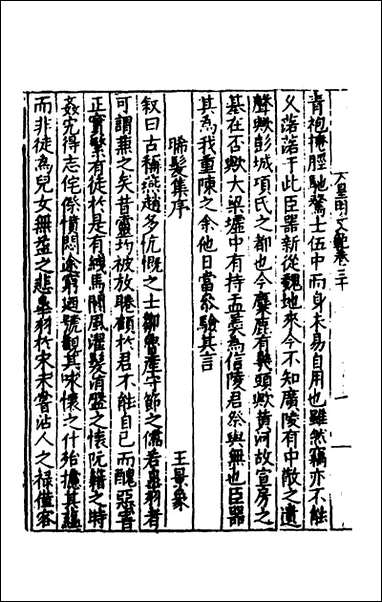 皇明文範卷三十
青袍掩脛馳騖士伍中而身未易自用也雖然竊亦不能
久落落于此臣器新從魏地來今不知廣陵有中散之遺
聲歟彭城項氏之都也今麋鹿有與頭歟黃河故宣房之
基在否歟大梁墟中有持盂羹為信陵君祭與無也臣器
其為我重陳之余他日當叅驗其言
晞髮集序 王景象
叙曰古稱燕趙多忼慨之士鄒魯產守節之儒若臯羽者
可謂兼之矣昔靈均被放睠顧於君不能自已而醜惡害
正實繁有徒於是有緤馬閬風濯髮洧盤之懐阮籍之時
姦宄得志侘傺憤悶途窮過號觀其咏懷之什殆攄其蘊
而非徒為兒女無益之悲臯羽於宋未嘗沾人之禄僅客